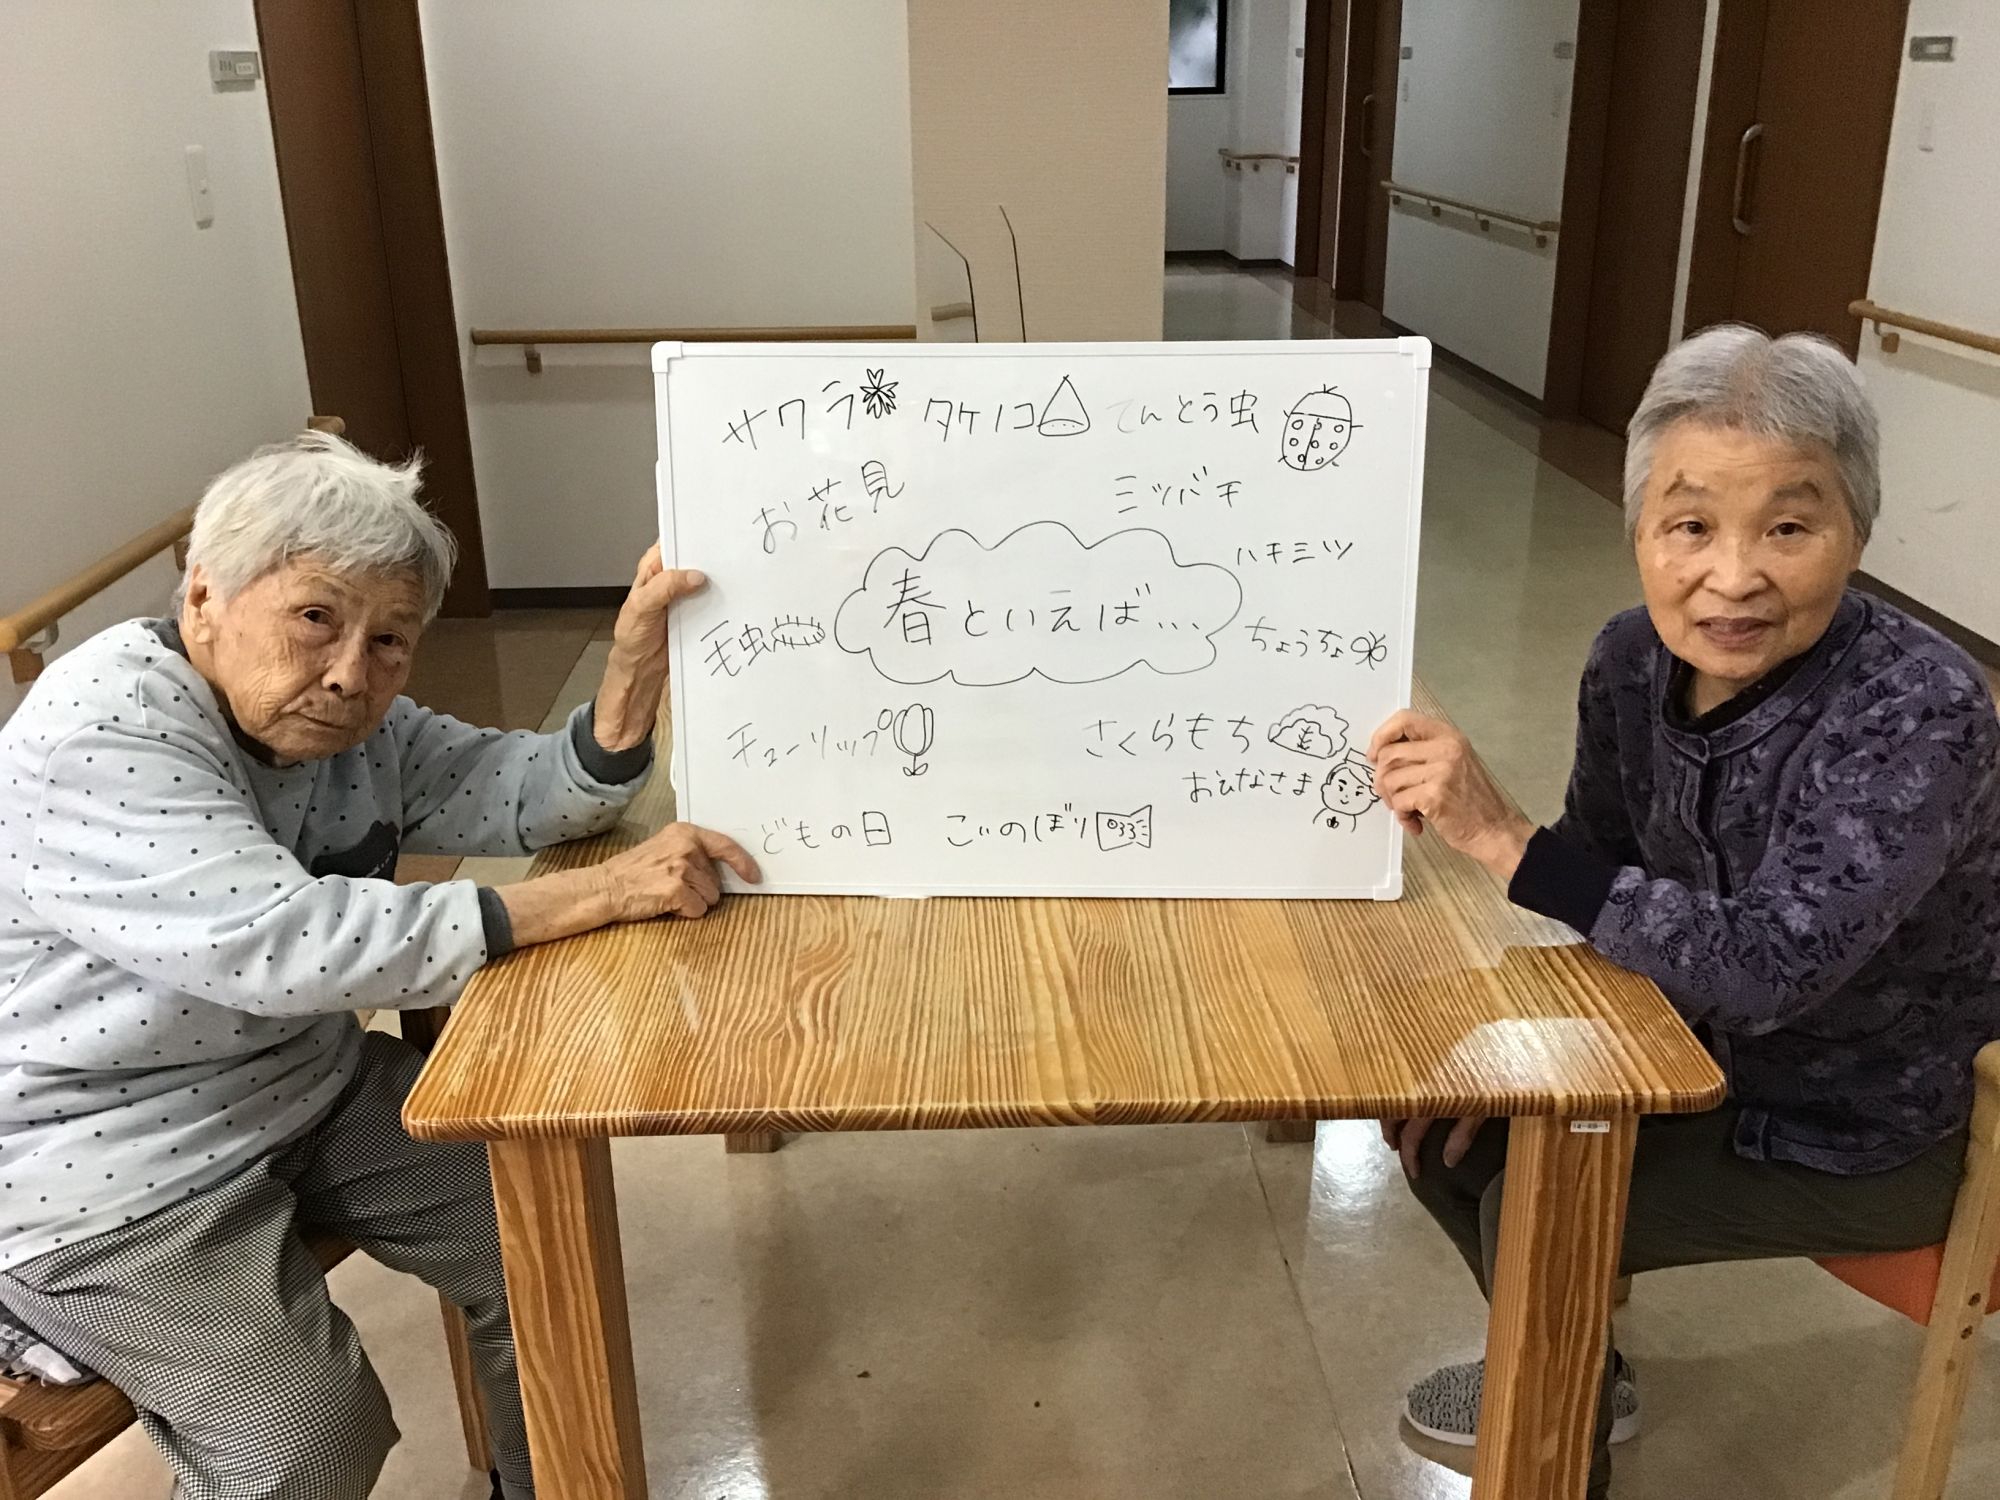 サクラ タケノコ てんとう虫
お花見 ミツバチ
ハチミツ
春といえば…
毛虫 ちょうちょ
チューリップ さくらもち
おひなさま
こどもの日 こいのぼり